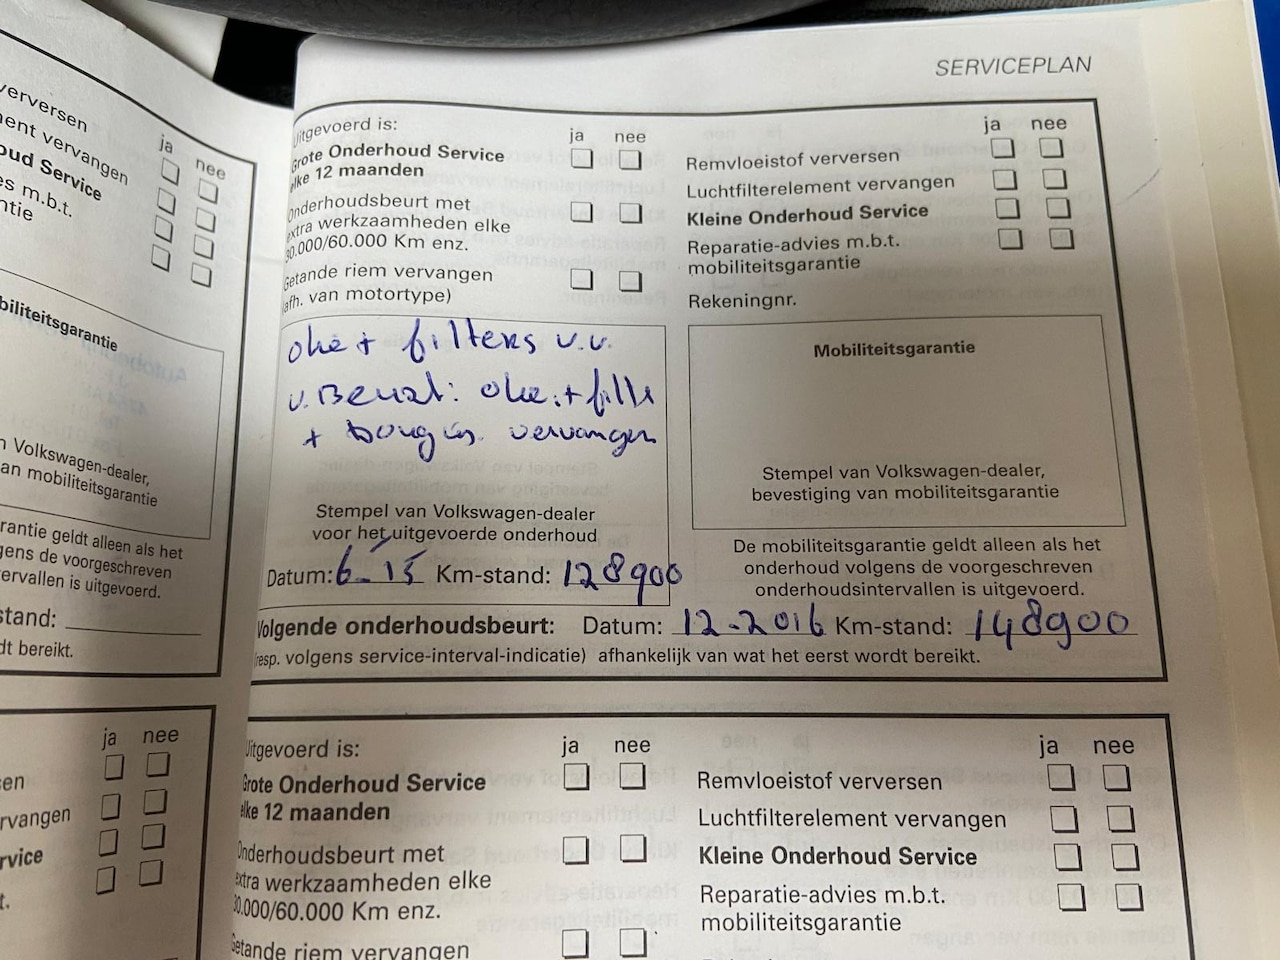 SERVICEPLAN
verversen
vervangen
Service
m.b.t.
ja nee
Volkswagen-dealer,
mobiliteitsgarantie
geldt alleen als het
voorgeschreven
is uitgevoerd.
bereikt.
ja nee
Uitgevoerd is: ja nee
Grote Onderhoud Service
elke 12 maanden
Onderhoudsbeurt met
extra werkzaamheden elke
30.000/60.000 Km enz.
Getande riem vervangen
(afh. van motortype)
ja nee
Remvloeistof verversen
Luchtfilterelement vervangen
Kleine Onderhoud Service
Reparatie-advies m.b.t.
mobiliteitsgarantie
Rekeningnr.
olie + filters v.v.
v. Beurt: olie + filt
+ bougies vervangen
Stempel van Volkswagen-dealer
voor het uitgevoerde onderhoud
Datum: 6-'15 Km-stand: 128900
Mobiliteitsgarantie
Stempel van Volkswagen-dealer,
bevestiging van mobiliteitsgarantie
De mobiliteitsgarantie geldt alleen als het
onderhoud volgens de voorgeschreven
onderhoudsintervallen is uitgevoerd.
Volgende onderhoudsbeurt: Datum: 12-2016 Km-stand: 148900
(resp. volgens service-interval-indicatie) afhankelijk van wat het eerst wordt bereikt.
Uitgevoerd is: ja nee
Grote Onderhoud Service
elke 12 maanden
Onderhoudsbeurt met
extra werkzaamheden elke
30.000/60.000 Km enz.
Getande riem vervangen
ja nee
Remvloeistof verversen
Luchtfilterelement vervangen
Kleine Onderhoud Service
Reparatie-advies m.b.t.
mobiliteitsgarantie